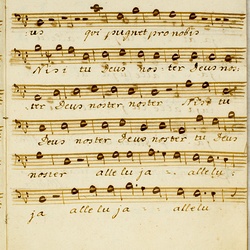 us qui pugnet pro nobis
Nisi tu Deus noster Deus nos:
ter Deus noster noster Nisi tu
Deus noster Deus noster tu Deus
noster alleluja allelu
ja alleluja allelu